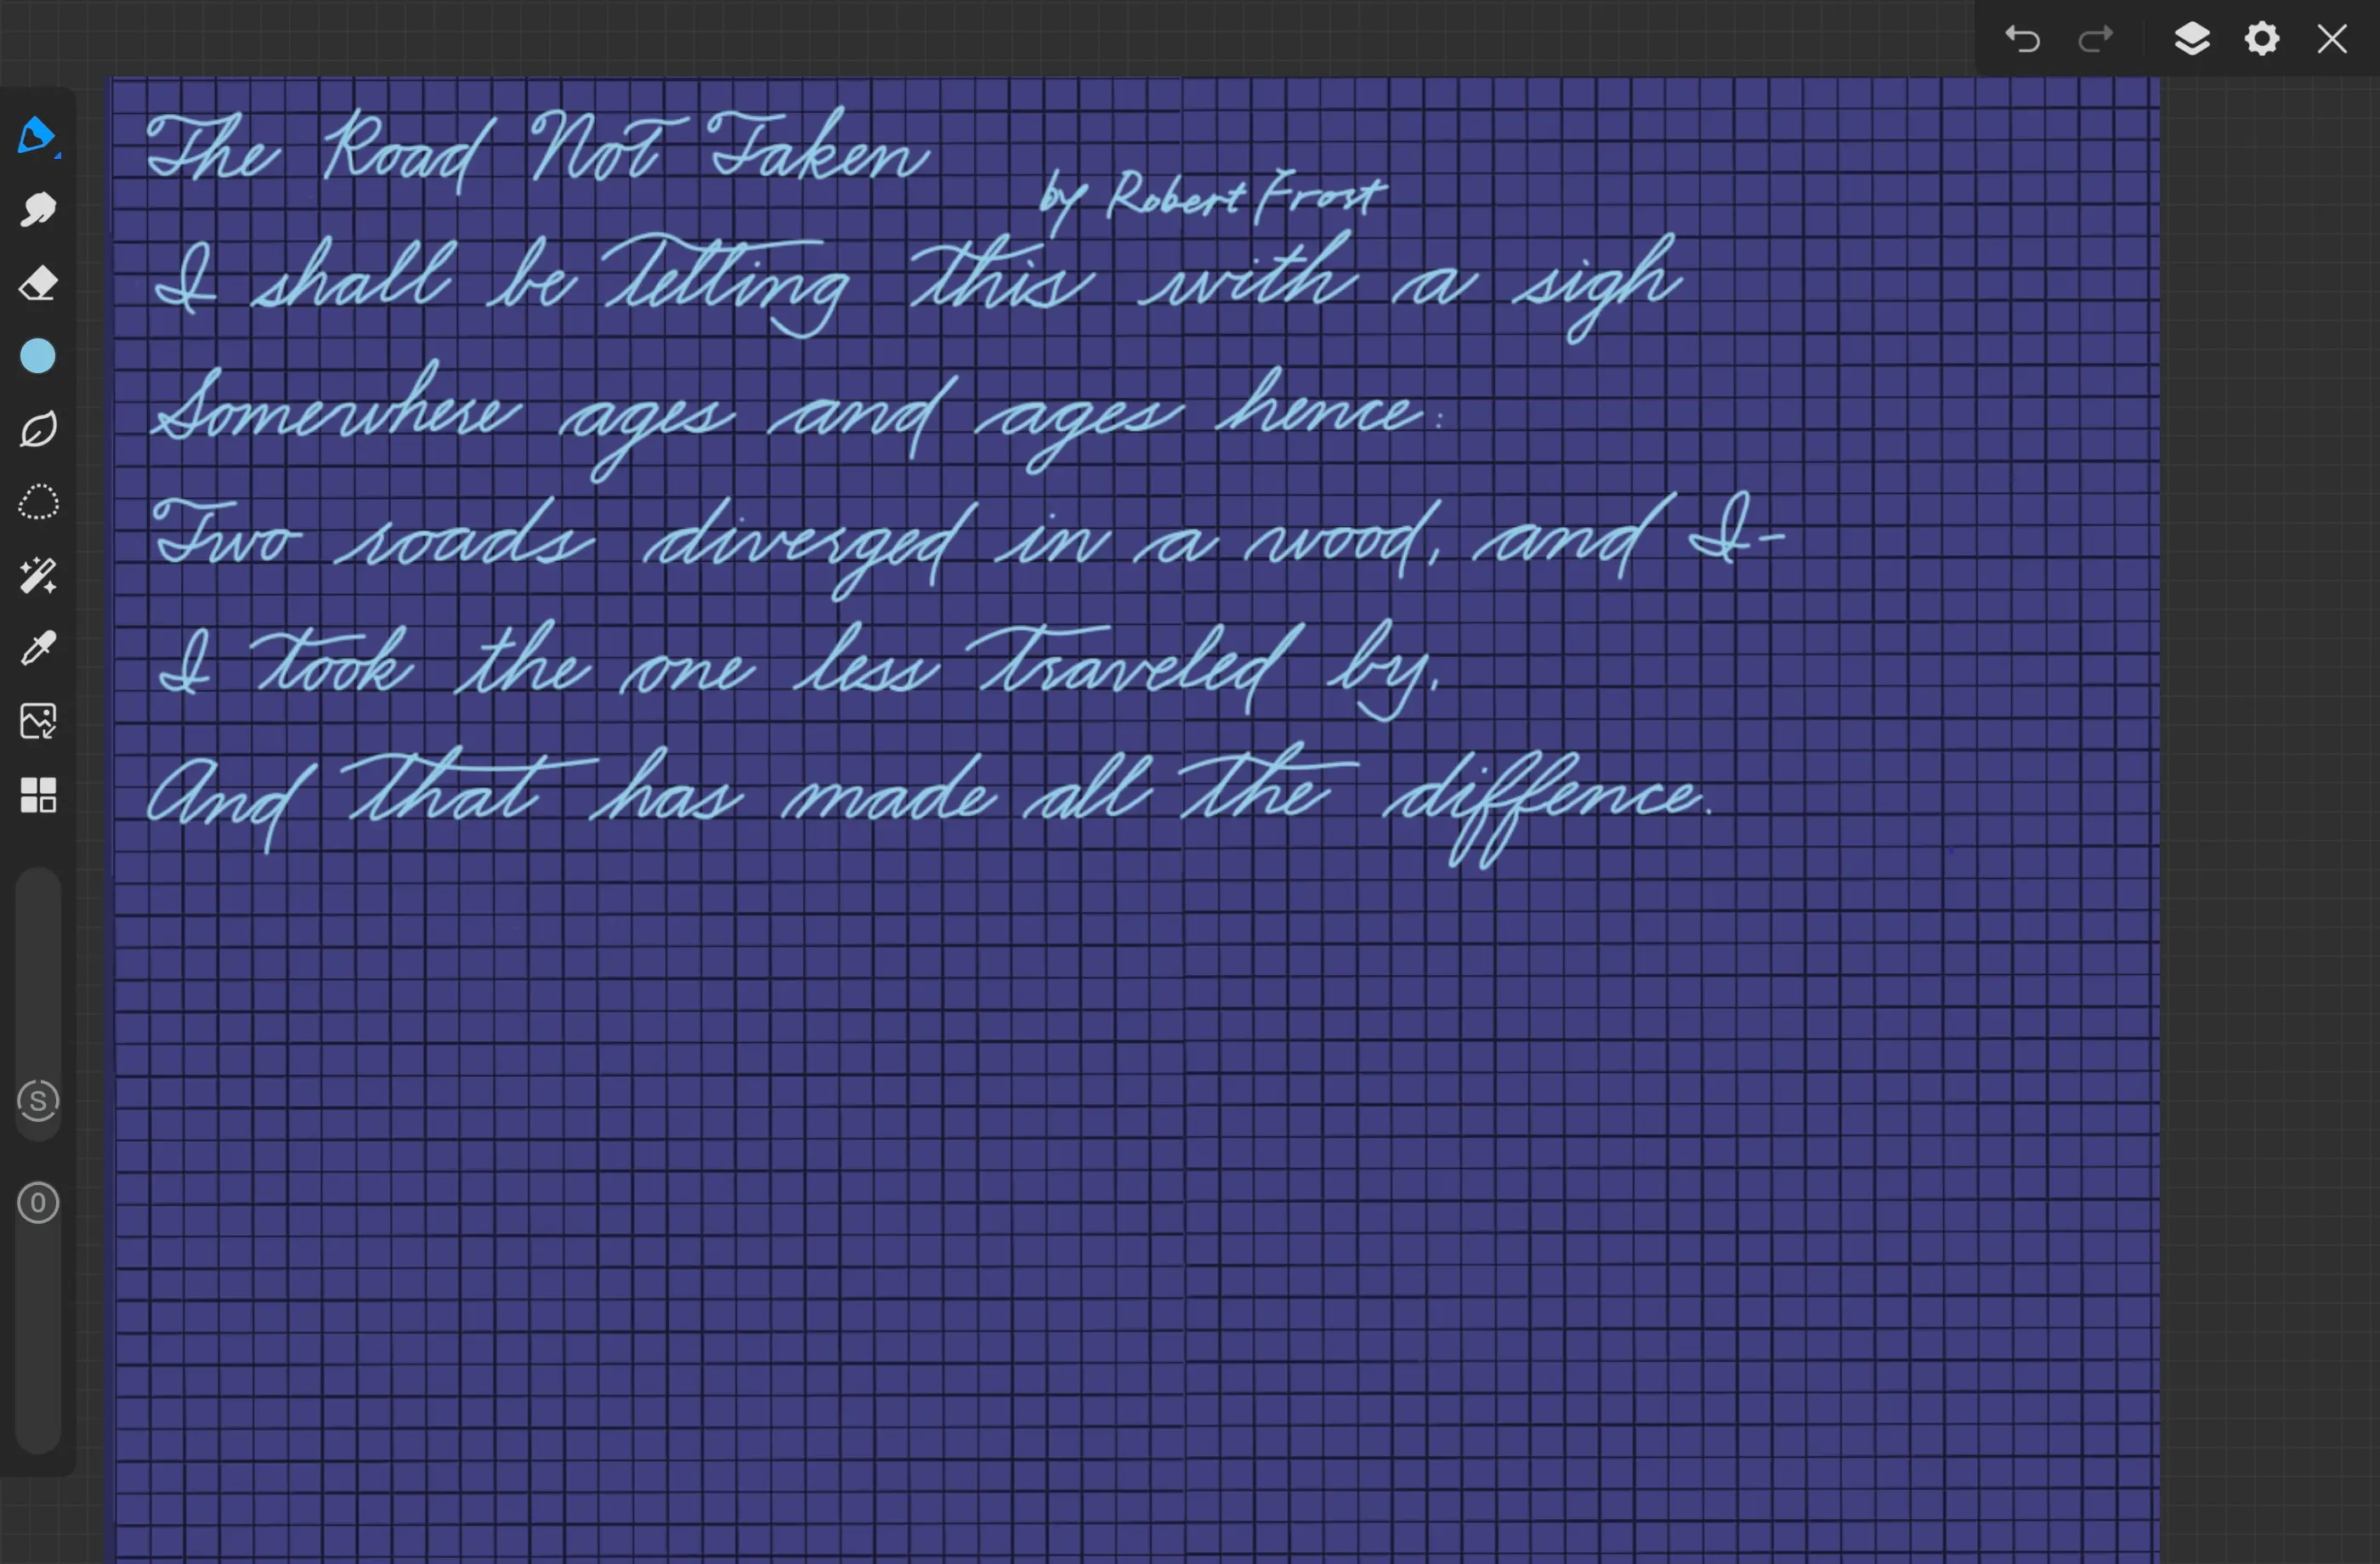 The Road Not Taken
by Robert Frost
I shall be telling this with a sigh
Somewhere ages and ages hence:
Two roads diverged in a wood, and I-
I took the one less traveled by,
And that has made all the diffence.
S
O